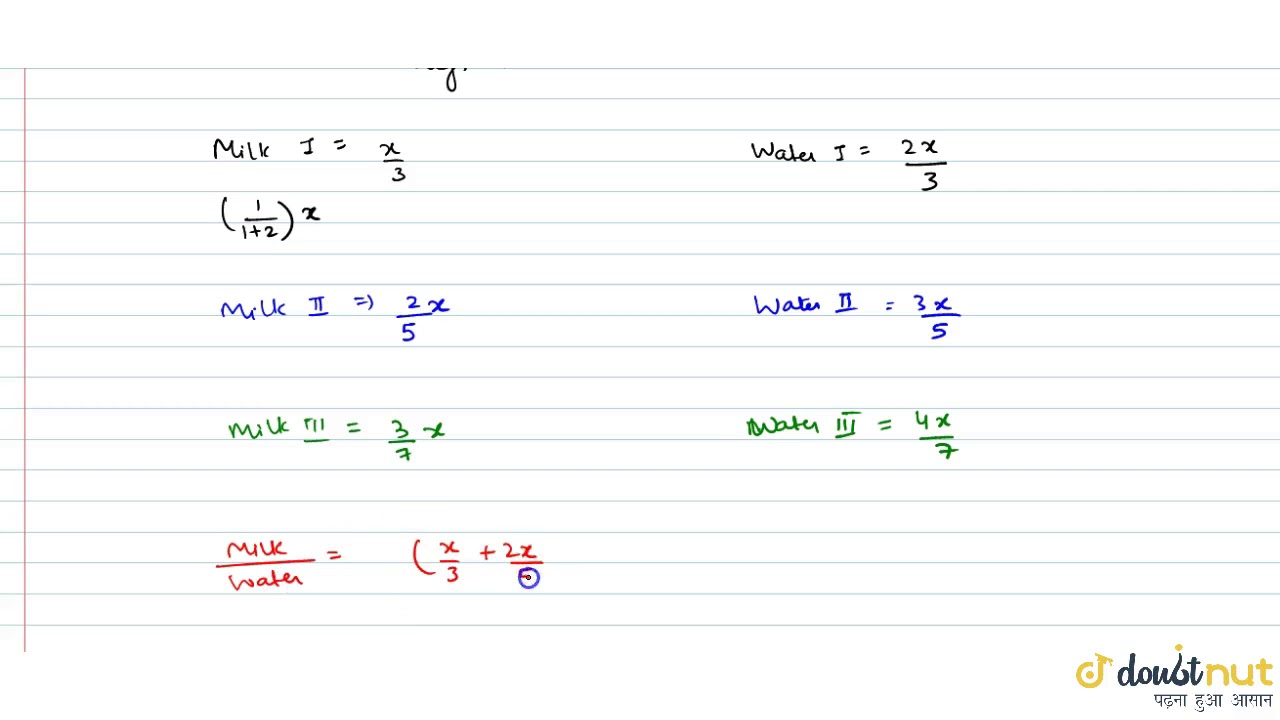 Milk I = x/3
Water I = 2x/3
(1/1+2)x
Milk II => 2x/5
Water II = 3x/5
Milk III = 3/7 x
Water III = 4x/7
Milk/Water = (x/3 + 2x/5
doubtnut
पढ़ना हुआ आसान